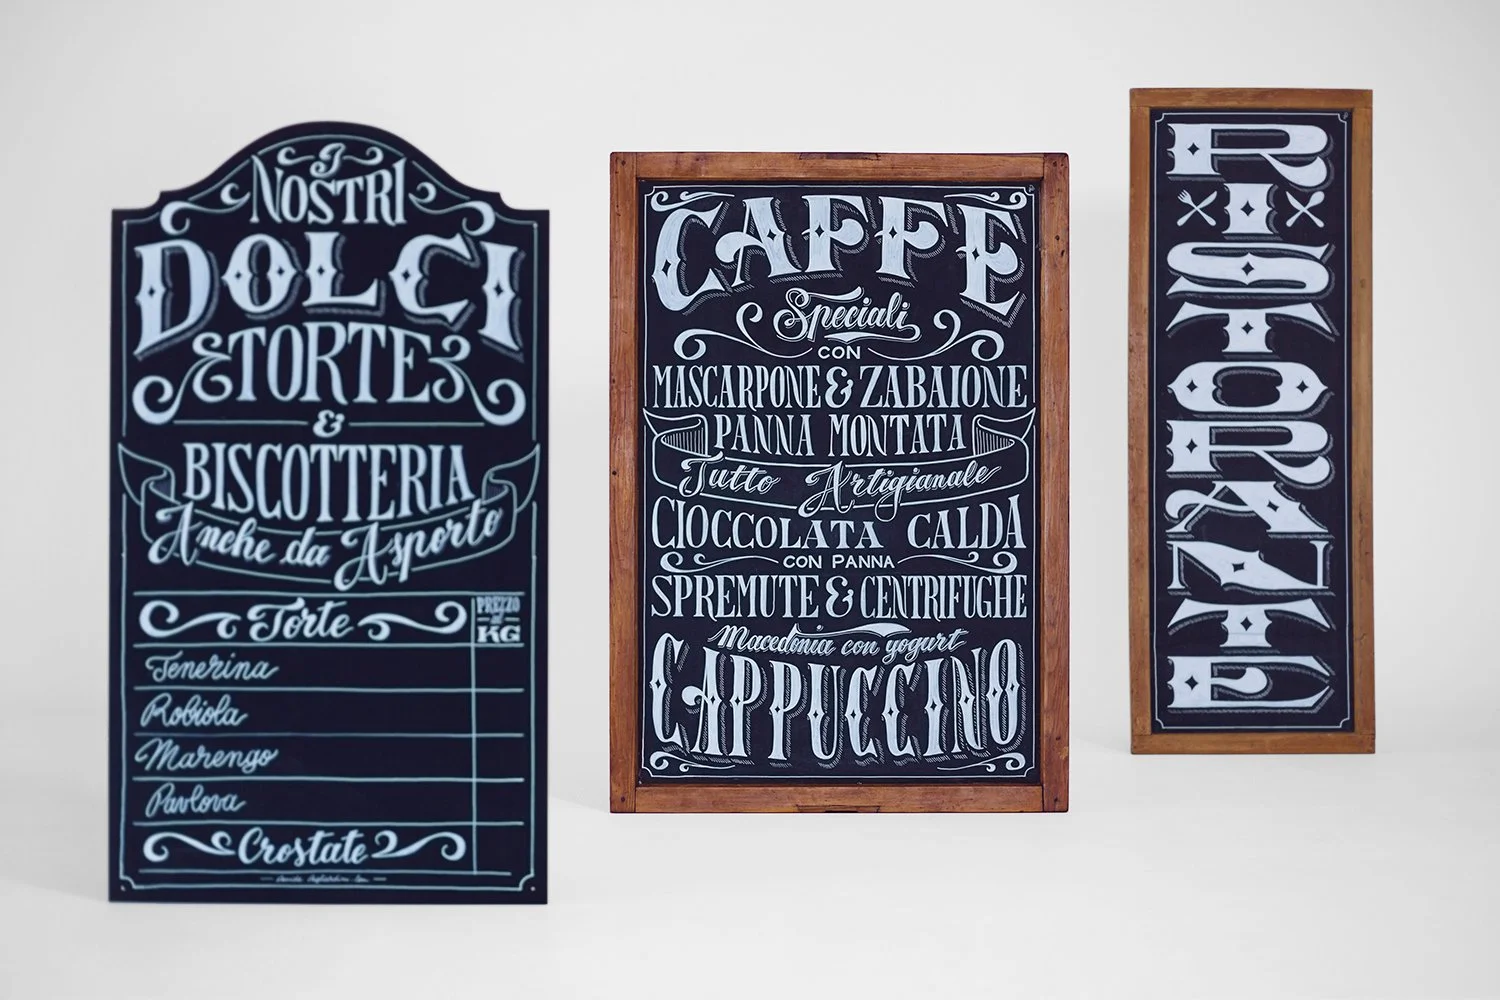 I
NOSTRI
DOLCI
TORTE
&
BISCOTTERIA
Anche da Asporto
Torte
PREZZO
al
KG
Tenerina
Robiola
Marengo
Pavlova
Crostate
CAFFE
Speciali
CON
MASCARPONE & ZABAIONE
PANNA MONTATA
Tutto Artigianale
CIOCCOLATA CALDA
CON PANNA
SPREMUTE & CENTRIFUGHE
Macedonia con yogurt
CAPPUCCINO
RISTORANTE